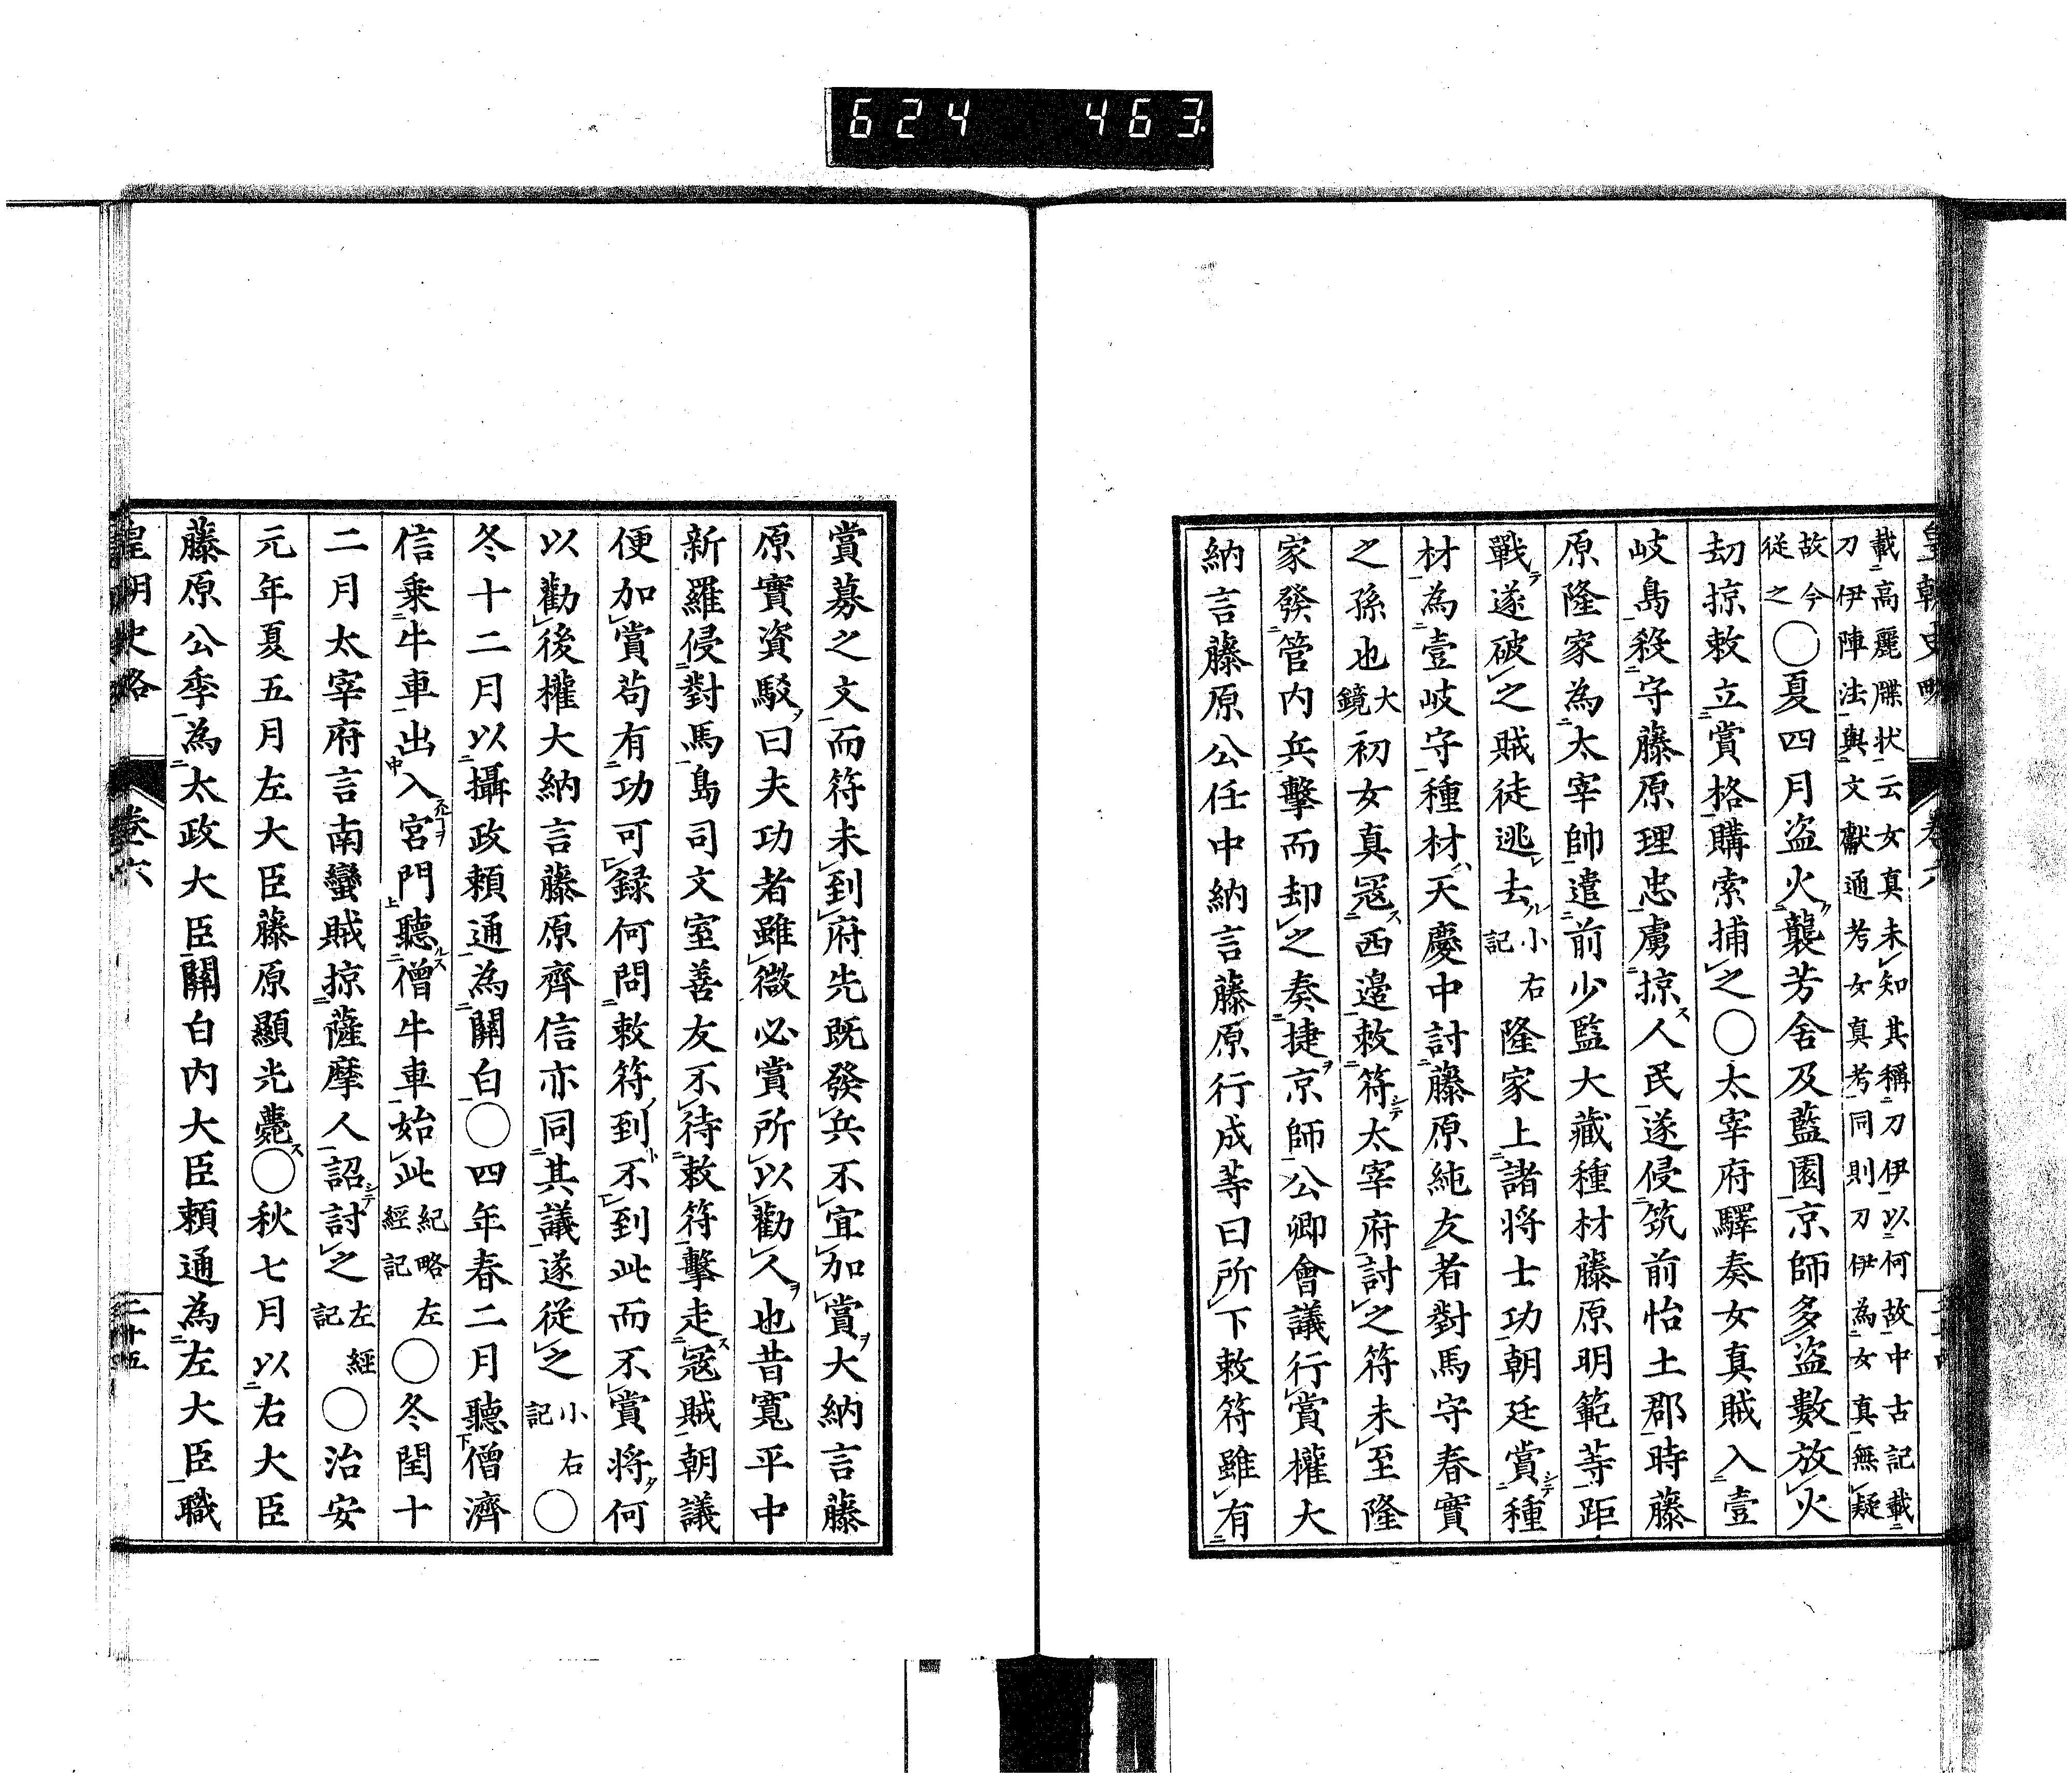 624 463
皇朝史略 卷六
載高麗牒状云女真未知其稱刀伊以何故中古記載
刀伊陣法與文獻通考女真考同則刀伊為女真無疑
故今
從之〇夏四月盗火襲芳舍及藍園京師多盗數放火
劫掠敕立賞格購索捕之〇太宰府驛奏女真賊入壹
岐島殺守藤原理忠虜掠人民遂侵筑前怡土郡時藤
原隆家為太宰帥遣前少監大藏種材藤原明範等距
戰遂破之賊徒逃去小右記隆家上諸将士功朝廷賞種
材為壹岐守種材天慶中討藤原純友者對馬守春實
之孫也大鏡初女真冦西邉敕符太宰府討之符未至隆
家發管内兵擊而却之奏捷京師公卿會議行賞權大
納言藤原公任中納言藤原行成等曰所下敕符雖有
賞募之文而符未到府先既發兵不宜加賞大納言藤
原實資駁曰夫功者雖微必賞所以勸人也昔寬平中
新羅侵對馬島司文室善友不待敕符擊走冦賊朝議
便加賞苟有功可録何問敕符到不到此而不賞将何
以勸後權大納言藤原齊信亦同其議遂從之小右記〇
冬十二月以攝政頼通為關白〇四年春二月聽僧濟
信乗牛車出入宮門聽僧牛車始此紀略左經記〇冬閏十
二月太宰府言南蠻賊掠薩摩人詔討之左經記〇治安
元年夏五月左大臣藤原顯光薨〇秋七月以右大臣
藤原公季為太政大臣關白内大臣頼通為左大臣職
皇朝史略 卷六 二十五